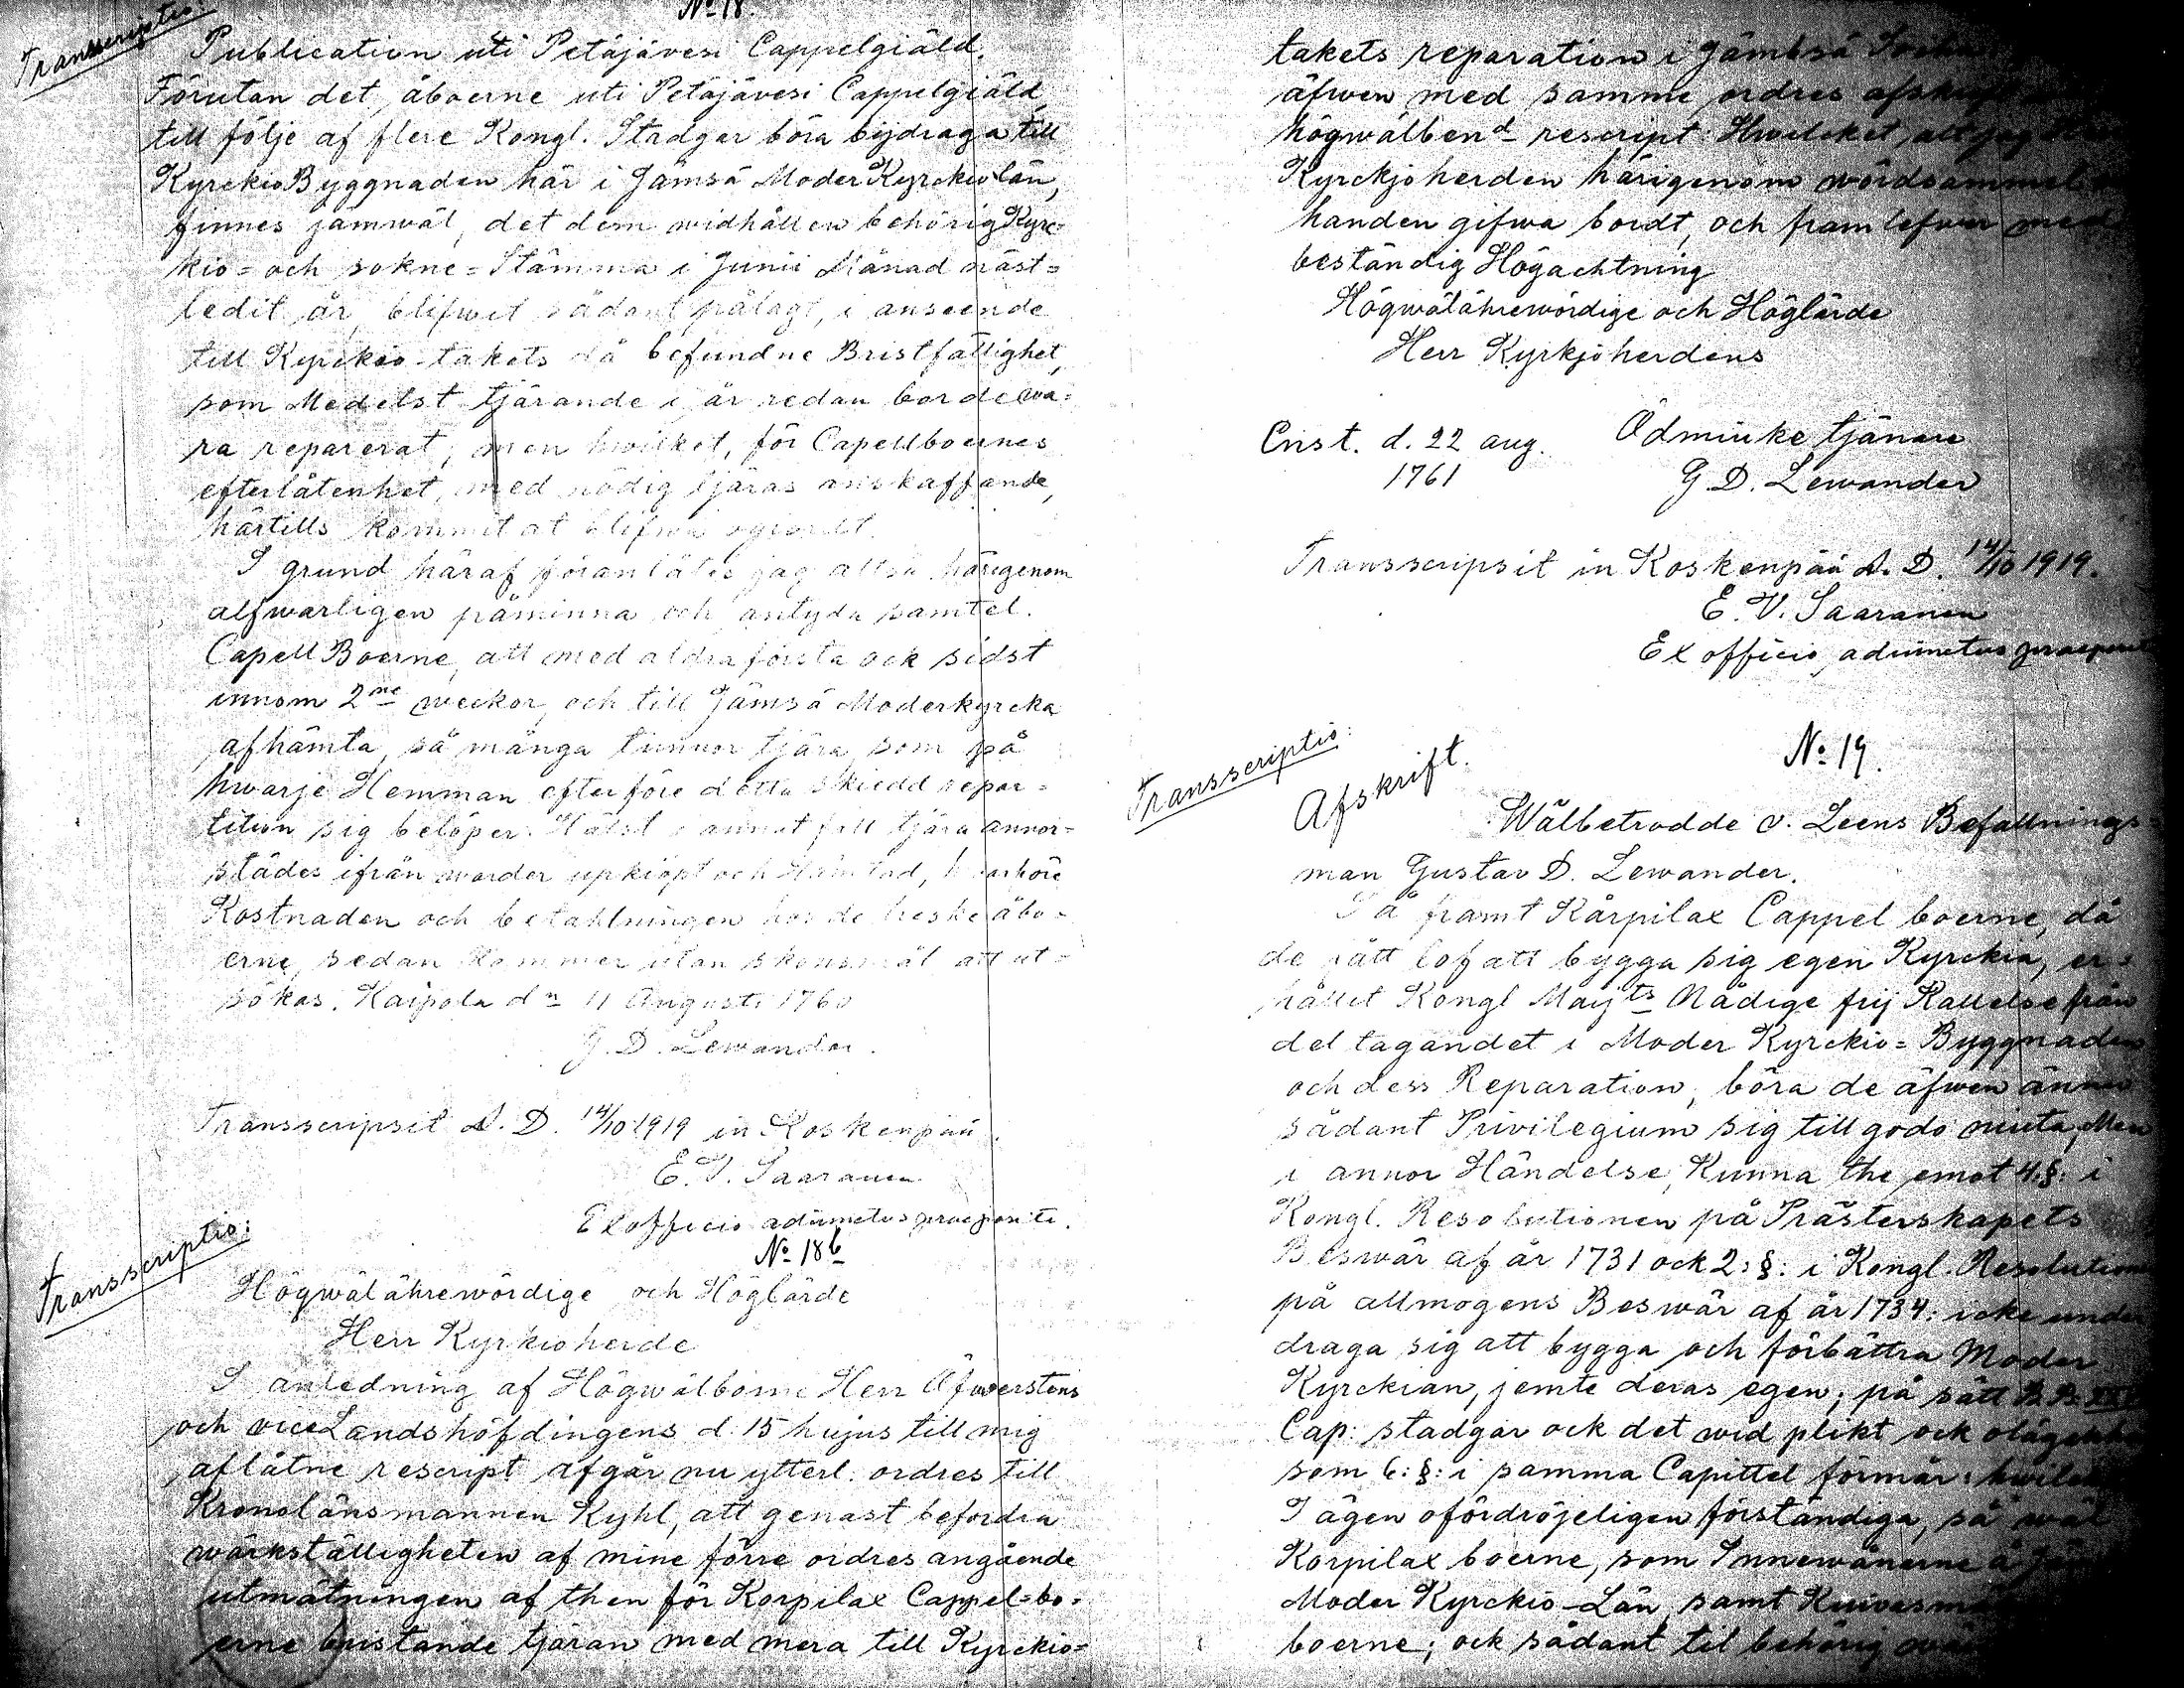 Transscriptio:
No 18.
Publication uti Petäjävesi Cappelgiäld.
Förutan det, åboerne uti Petäjävesi Cappelgiäld,
till följe af flere Kongl. Stadgar böra bijdraga till
KyrckioByggnaden här i Jämsä ModerKyrckiolän,
finnes jämwäl, det dem widhållen behörig Kyrc-
kio= och sokne=Stämma i Junii Månad näst=
ledit år, blifwit sådant pålagt, i anseende
till Kyrckio-takets då befundne Bristfällighet,
som Medelst tjärande i år redan borde wa=
ra reparerat, men hwilket, för Capellboernes
efterlåtenhet, med nödig tjäras anskaffande,
härtills kommit at blifwa ogiordt.
I grund häraf föranlåtes jag altså härigenom
alfwarligen påminna och antyda samtel.
Capell Boerne, att med aldraförsta ock sidst
innom 2ne weckor, och till Jämsä Moderkyrcka
afhämta, så många tunnor tjära, som på
hwarje Hemman efter före detta skiedd repar=
tition sig belöper. Hälst i annat fall tjära annor=
städes ifrån warder upkiöpt och Hämtad,
Kostnaden och betahlningen hos de åbo=
erne, sedan Kommer utan skonsmål att ut=
sökas. Kaipola dn 11 Augusti 1760
G. D. Lewander.
Transscripsit A. D. 14/10 1919 in Koskenpää.
E. V. Saaranen
Ex officio adiunctus praepositi.
Transscriptio:
No 18b
Högwälährewördige och Höglärde
Herr Kyrkioherde
I anledning af Högwälborne Herr Öfwerstens
och viceLandshöfdingens d. 15 hujus till mig
aflåtne rescript afgår nu ytterl. ordres till
Kronolänsmannen Kyhl, att genast befordra
wärkställigheten af mine förre ordres angående
utmätningen af then för Korpilax Cappel=bo=
erne bristande tjäran med mera till Kyrckio=
takets reparation i Jämbsä
äfwen med samme ordres
högwälbend rescript. Hwilcket, att jag
Kyrckjoherden härigenom wördsammel.
handen gifwa bordt, och framlefwer med
beständig Högachtning
Högwälährewördige och Höglärde
Herr Kyrkjoherdens
Ödmiuke tjänare
Enst. d. 22 aug.
1761
G. D. Lewander
Transscripsit in Koskenpää A. D. 14/10 1919.
E. V. Saaranen
Ex officio adiunctus praepositi
Transscriptio:
Afskrift.
No 19.
Wälbetrodde v. Leens Befallnings-
man Gustav D. Lewander.
Så framt Kårpilax Cappel boerne, då
de fått lof att bygga sig egen Kyrckia, er=
hållit Kongl Maijts Nådige frij Kallelse från
del tagandet i Moder Kyrckio=Byggnaden
och dess Reparation, böra de äfwen ännu
sådant Privilegium sig till godo niuta, Men
i annor Händelse, Kunna the emot 4:§: i
Kongl. Resolutionen på Prästerskapets
Beswär af år 1731 ock 2:§: i Kongl. Resolution
på allmogens Beswär af år 1734: icke under
draga sig att bygga och förbättra Moder
Kyrckian, jemte deras egen; på sätt B. B.
Cap: stadgar ock det wid plikt ock
som 6:§: i samma Capittel förmår:
I ägen ofördröjeligen förständiga, så wäl
Korpilax boerne, som Innewånerne å
Moder Kyrckio-Län, samt
boerne; ock sådant til behörig